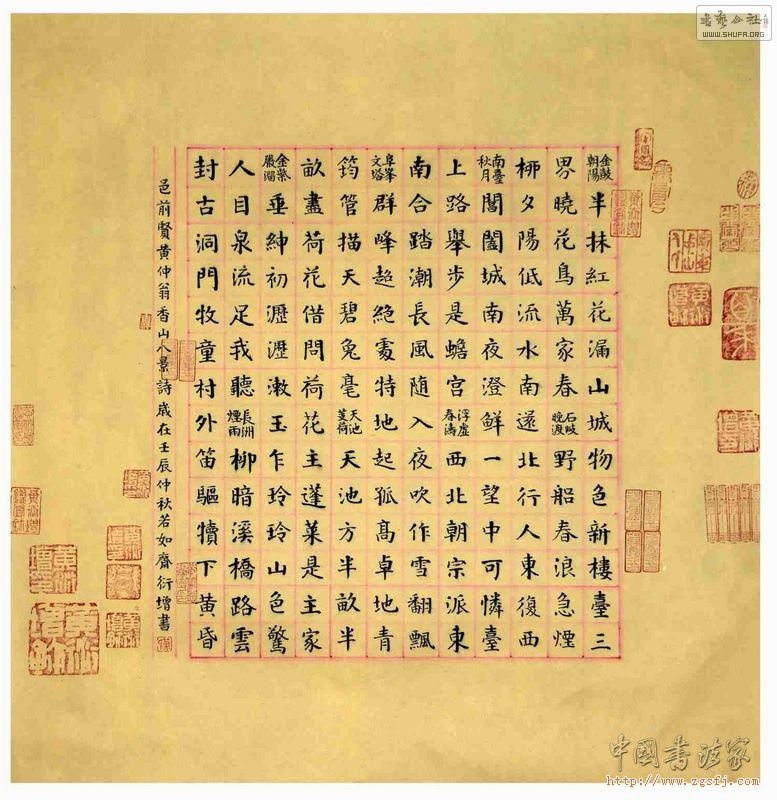 金鼓朝陽半抹紅花漏山城物色新樓臺三
界曉花鳥萬家春石岐晚渡野船春浪急煙
柳夕陽低流水南還北行人東復西
南臺秋月閶闔城南夜澄鮮一望中可憐臺
上路舉步是蟾宮浮虛春濤西北朝宗派東
南合踏潮長風随入夜吹作雪翻飄
阜峯文塔群峰超絕處特地起孤高卓地青
筠管描天碧兔毫天池芰荷天池方半畝半
畝盡荷花借問荷花主蓬萊是主家
金紫巖溜垂紳初瀝瀝漱玉乍玲玲山色驚
人目泉流足我聽長洲煙雨柳暗溪橋路雲
封古洞門牧童村外笛驅犢下黄昏
邑前賢黃仲翁香山八景詩歲在壬辰仲秋若如齋衍增書
書藝公社
WWW.SHUFA.ORG
中国书法家
http://www.zgsfj.com